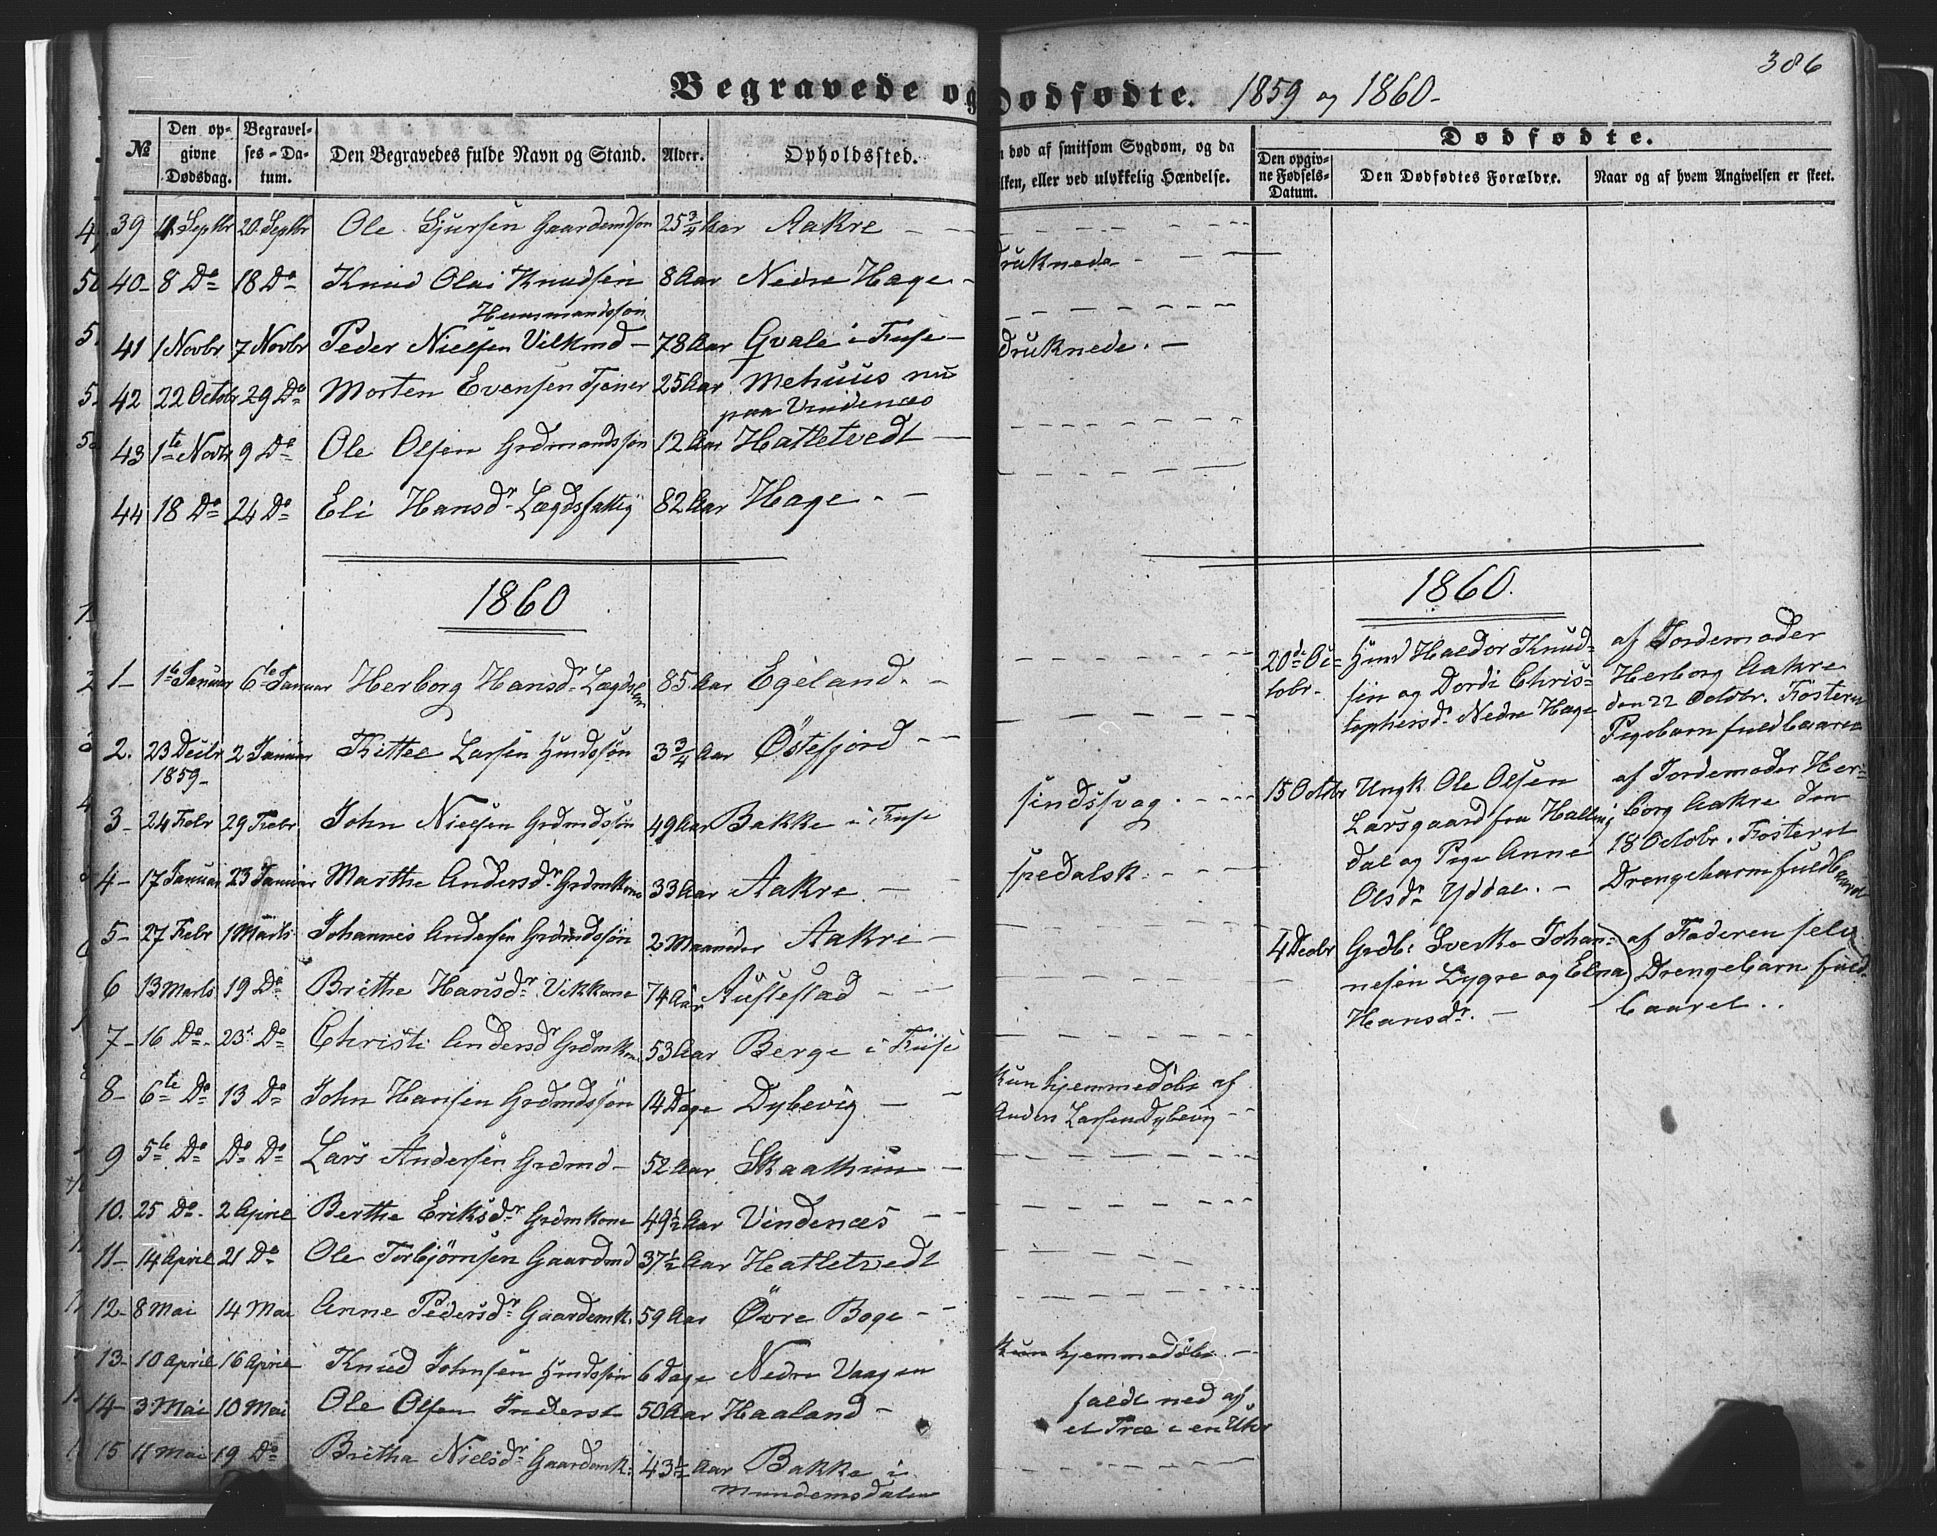 386
Begravede og Dødfødte. 1859 og 1860-
№ Den opgivne Dødsdag. Begravelses-Datum. Den Begravedes fulde Navn og Stand. Alder. Opholdssted.
død af smitsom Sygdom, og da
ilken, eller ved ulykkelig Hændelse.
Dødfødte.
Den opgivne Fødsels-Datum. Den Dødfødtes Forældre. Naar og af hvem Angivelsen er skeet.
39 Septbr 20 Septbr Ole Sjursen Gaardmdsøn 25 3/4 Aar Aakre
40- 8 Do 18 Do Knud Olai Knudsen 8 Aar Nedre Hage - druknede -
Huusmandssøn
41 1 Novbr 7 Novbr Peder Nielsen Vilkmd - 78 Aar Qvale i Fuse -
42 22 Octobr 29 Do Morten Evensen Tjener 25 Aar Mehuus nu druknede. -
paa Vindenæs
43 1te Novbr 9 Do Ole Olsen Grdmandssøn 12 Aar Hatletvedt
44 18 Do 24 Do Eli Hansdr Lægdsfattig 82 Aar Hage. -
1860
1- 1te Januar 6te Januar Herborg Hansdr Lægdsl 85 Aar Egeland. -
2. 23 Decbr 2 Januar Kittel Larsen Hmdssøn 3 3/4 Aar Østefjord - -
1859-
3- 24 Febr 29 Febr John Nielsen Grdmdssøn 49 Aar Bakke i Fuse sindssvag. -
4- 17 Januar 23 Januar Marthe Andersdr Grdmkone 33 Aar Aakre - spedalsk. -
5- 27 Febr 1 Marts Johannes Andersen Grdmdssøn 2 Maaneder Aakre -
6 13 Marts 19 Do Brithe Hansdr Vikkone 74 Aar Austestad -
7- 16 Do - 23 Do Christi Andersdr Grdmkone 53 Aar Berge i Fuse
8- 6te Do 13 Do John Hansen Grdmdssøn 14 Dage Dybevig - Kun hjemmedøbt af
Anders Larsen Dybevig
9 5te Do Do Do Lars Andersen Grdmd - 52 Aar Skaathun -
10. 25 Do - 2 April Berthe Eriksdr Grdmkone 49 1/2 Aar Vindenæs -
11- 14 April 21 Do Ole Torbjørnsen Gaardmd 37 1/2 Aar Hatletvedt
12- 8 Mai 14 Mai Anne Pedersdr Gaardemk. 59 Aar Øvre Boge -
13- 10 April 16 April Knud Johnsen Hmdssøn 6 Dage Nedre Vaagen Kun hjemmedøbt. -
14- 3 Mai 10 Mai Ole Olsen Inderst 50 Aar Haaland - faldt ned af
et Træ i en
15 11 Mai 19 Do Britha Nielsdr Gaardemk: 43 1/2 Aar Bakke i
Mundemsdalen
1860.
20de Octobr- Hmd Haldor Knudsen og Dordi Christophersdr Nedre Hage
af Jordemoder
Herborg Aakre
den 22 Octobr. Fosteret
Pigebarn fuldbaaren
15 Octbr Ungk Ole Olsen
Larsgaard fra Hallingdal og Pige Anne
Olsdr Yddal. -
af Jordemoder Herborg Aakre den
18 Octobr. Fosteret
Drengebarn fuldbaaret
4 Decbr Grdb: Sverke Johannesen Lygre og Elna
Hansdr. -
af Faderen selv
Drengebarn fuldbaaret . .